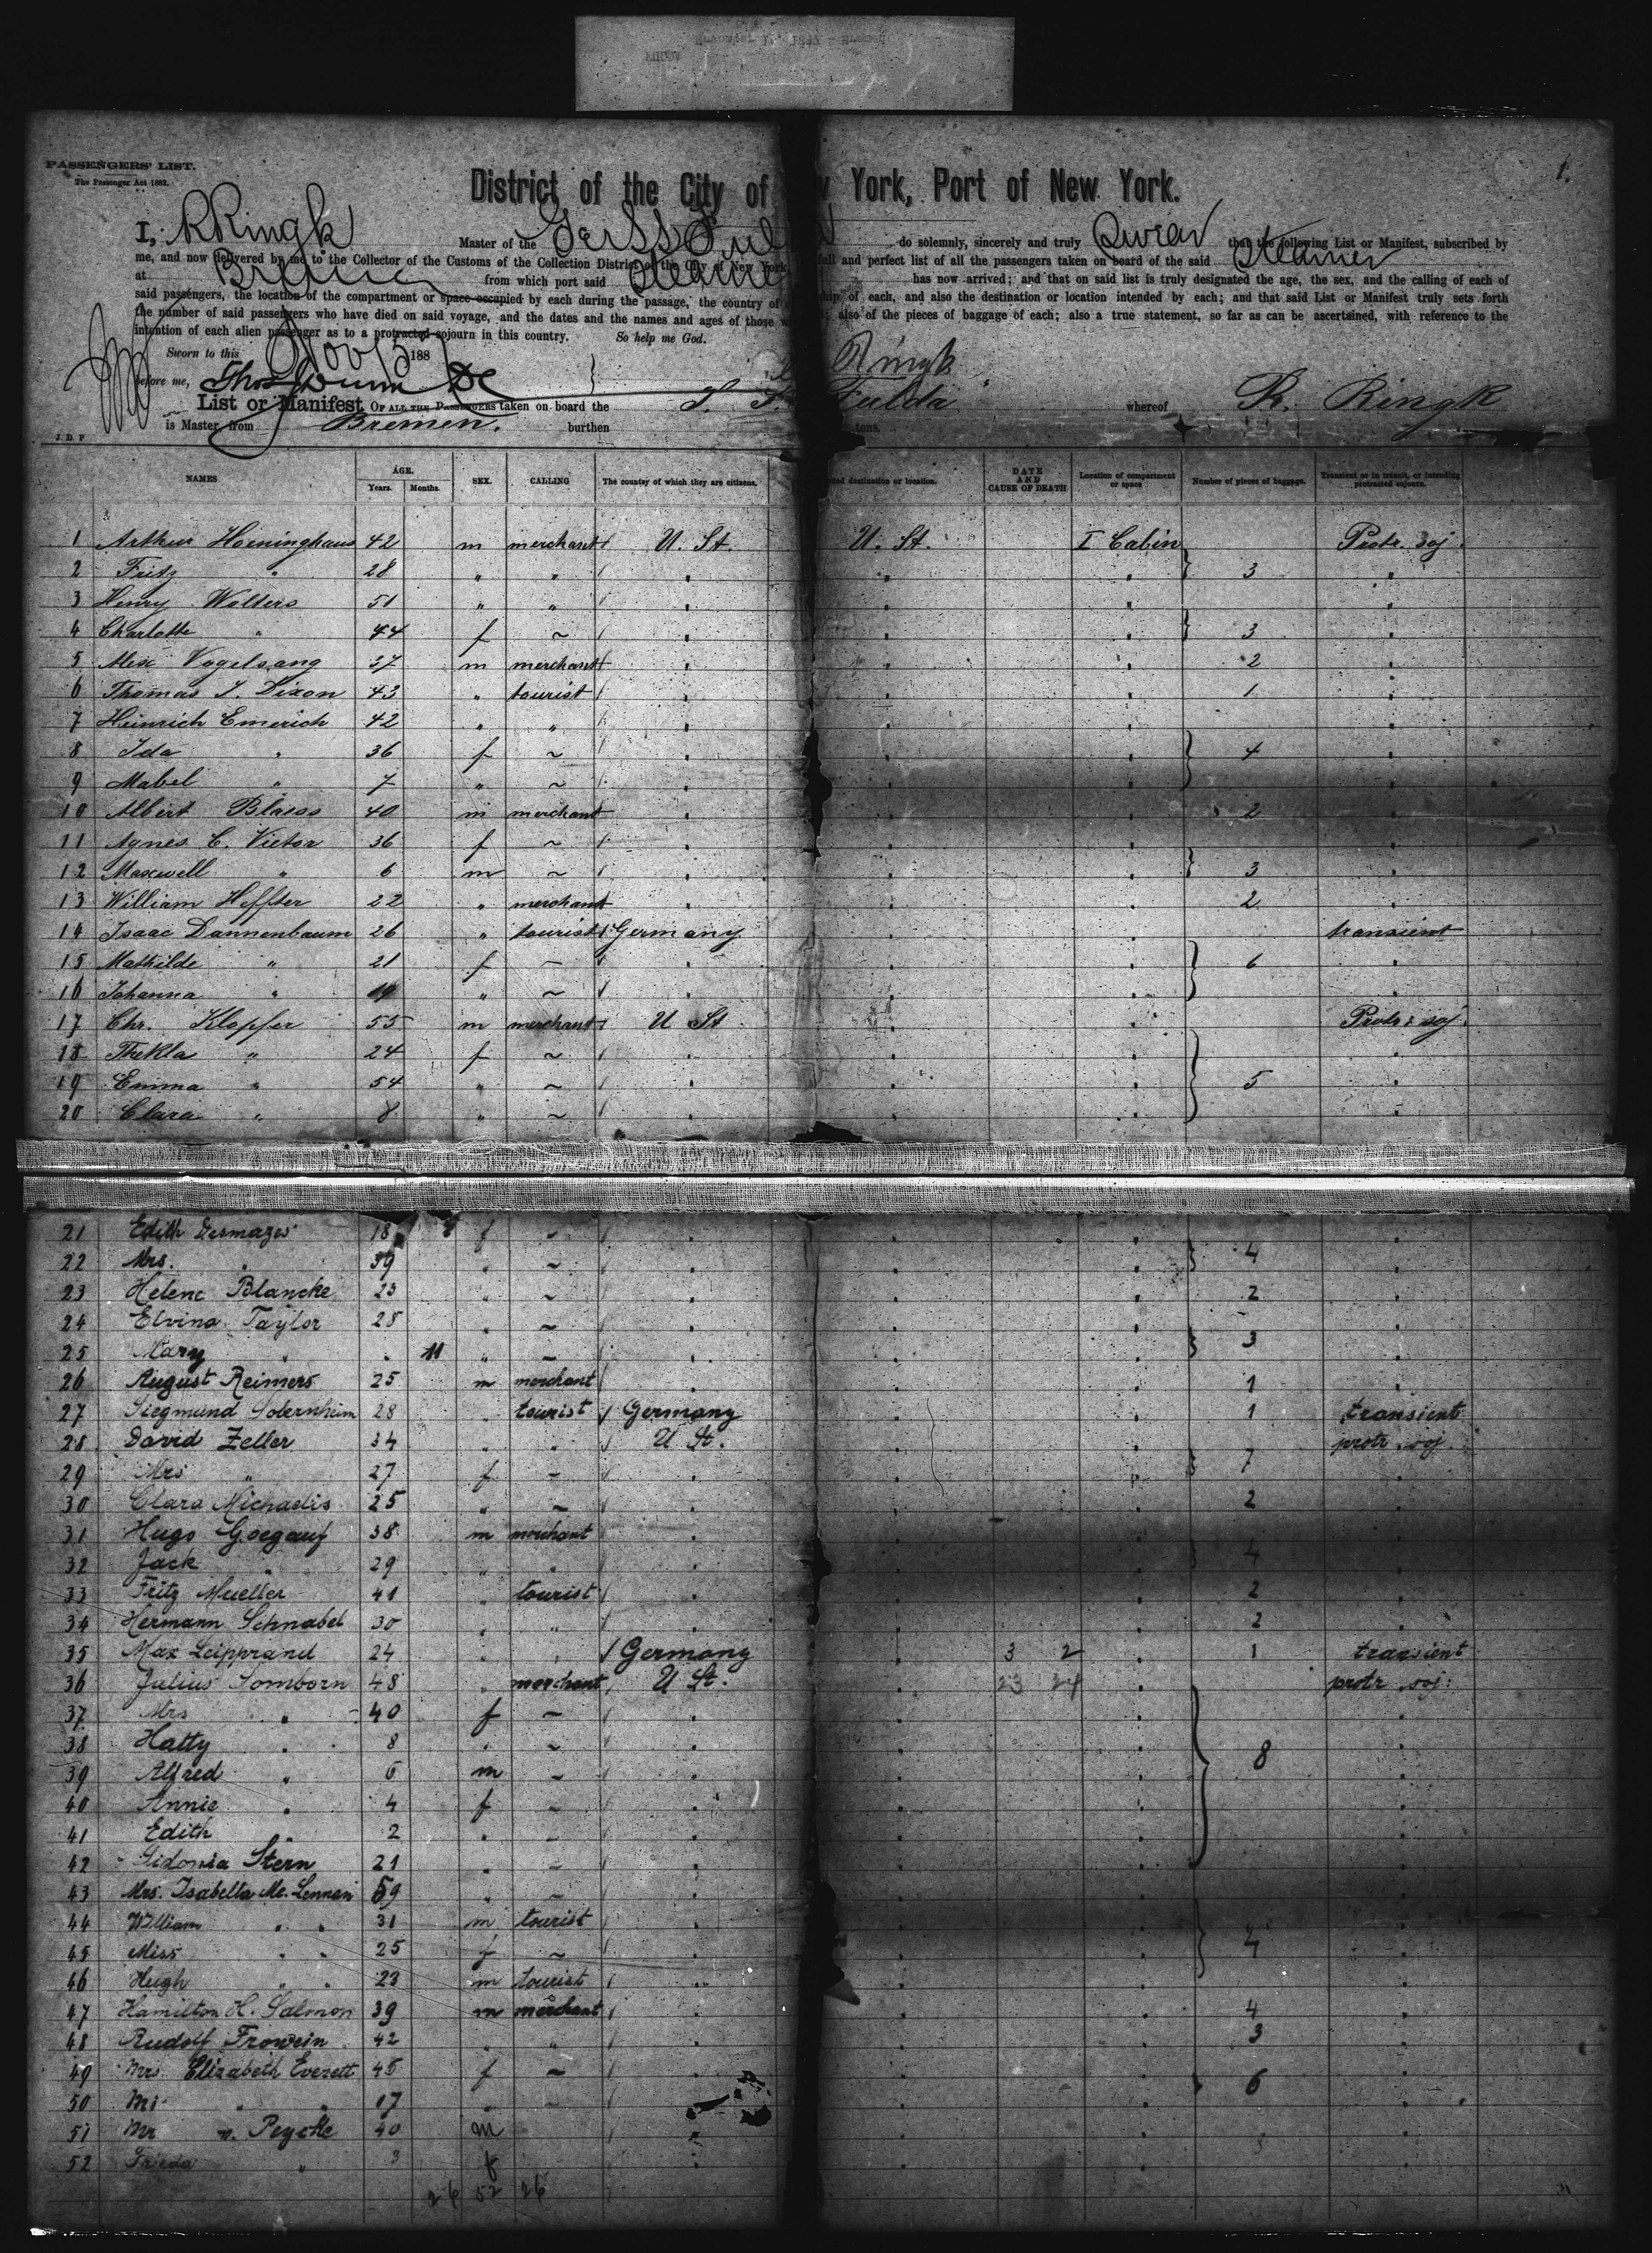 PASSENGERS' LIST.
The Passenger Act 1882.
1.
District of the City of York, Port of New York.
I, R Ringk Master of the Ger SS Ful do solemnly, sincerely and truly Swear that the following List or Manifest, subscribed by
me, and now delivered by me to the Collector of the Customs of the Collection District of the City of New York, full and perfect list of all the passengers taken on board of the said Steamer
at Bremen from which port said Steamer has now arrived; and that on said list is truly designated the age, the sex, and the calling of each of
said passengers, the location of the compartment or space occupied by each during the passage, the country of of each, and also the destination or location intended by each; and that said List or Manifest truly sets forth
the number of said passengers who have died on said voyage, and the dates and the names and ages of those also of the pieces of baggage of each; also a true statement, so far as can be ascertained, with reference to the
intention of each alien passenger as to a protracted sojourn in this country. So help me God.
Sworn to this Nov 5 188 Ringk
before me,
List or Manifest OF ALL THE PASSENGERS taken on board the S. S. Fulda whereof R. Ringk
is Master, from Bremen. burthen tons.
J. D. P
NAMES AGE. Years. Months. SEX. CALLING The country of which they are citizens. destination or location. DATE AND CAUSE OF DEATH Location of compartment or space Number of pieces of baggage. Transient or in transit, or intending protracted sojourn.
1 Arthur Horninghaus 42 m merchant U. St. U. St. I Cabin Protr. soj.
2 Fritz " 28 " " " " " 3 "
3 Henry Wolters 51 " " " " " "
4 Charlotte " 44 f ~ " " " 3 "
5 Alex Vogelsang 37 m merchant " " " 2 "
6 Thomas J. Dixon 43 " tourist " " " 1 "
7 Heinrich Emerich 42 " " " " " "
8 Ida " 36 f ~ " " " 4 "
9 Mabel " 7 " ~ " " " "
10 Albert Blaess 40 m merchant " " " 2 "
11 Agnes C. Vietor 36 f ~ " " " "
12 Maxwell " 6 m ~ " " " 3 "
13 William Heffter 22 " merchant " " " 2 "
14 Isaac Dannenbaum 26 " tourist Germany " " transient
15 Mathilde " 21 f ~ " " " 6 "
16 Johanna " 19 " ~ " " " "
17 Chr. Klopfer 55 m merchant U St " " Protr. soj.
18 Thekla " 24 f ~ " " " "
19 Emma " 54 " ~ " " " 5 "
20 Clara " 8 " ~ " " " "
21 Edith Desmazes 18 f ~ " " " "
22 Mrs. " 39 " ~ " " " 4 "
23 Helene Blancke 23 " ~ " " " 2 "
24 Elvina Taylor 28 " ~ " " " "
25 Mary " " 11 " ~ " " " 3 "
26 August Reimers 25 m merchant " " " 1 "
27 Siegmund Sobernheim 28 " tourist Germany " " 1 transient
28 David Zeller 34 " " U St. " " protr. soj.
29 Mrs " 27 f ~ " " " 7 "
30 Clara Michaelis 25 " ~ " " " 2 "
31 Hugo Goegauf 38 m merchant " " " "
32 Jack " 29 " " " " " 4 "
33 Fritz Mueller 41 " tourist " " " 2 "
34 Hermann Schnabel 30 " " " " " 2 "
35 Max Leipprand 24 " " Germany " 3 2 " 1 transient
36 Julius Somborn 48 " merchant U St. " 23 24 " protr. soj.
37 Mrs " 40 f ~ " " " "
38 Hatty " 8 " ~ " " " "
39 Alfred " 6 m ~ " " " 8 "
40 Annie " 4 f ~ " " " "
41 Edith " 2 " ~ " " " "
42 Sidonia Stern 21 " ~ " " " "
43 Mrs. Isabella Mc. Lennan 59 " ~ " " " "
44 William " " 31 m tourist " " " "
45 Miss " " 25 f ~ " " " 4 "
46 Hugh " " 23 m tourist " " " "
47 Hamilton H. Salmon 39 m merchant " " " 4 "
48 Rudolf Frowein 42 " " " " " 3 "
49 Mrs Elizabeth Everett 45 f ~ " " " 6 "
50 " " 17 " ~ " " " "
51 Mr Peycke 40 m " " " "
52 Frieda " 3 f " " " "
26 52 26